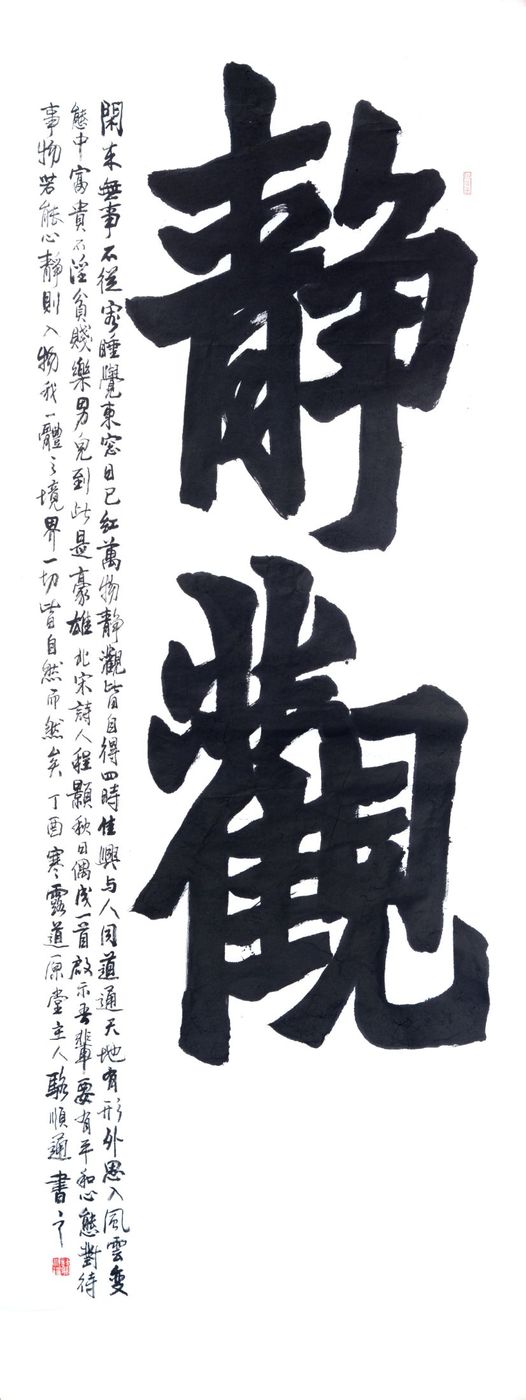 静觀
閑来無事不從容睡覺東窓日已紅萬物静觀皆自得四時佳興与人同道通天地有形外思入風雲變
態中富貴不淫貧賤樂男兒到此是豪雄北宋詩人程顥秋日偶成一首啟示吾輩要有平和心態對待
事物若能心静則入物我一體之境界一切皆自然而然矣丁酉寒露道原堂主人駱順通書之